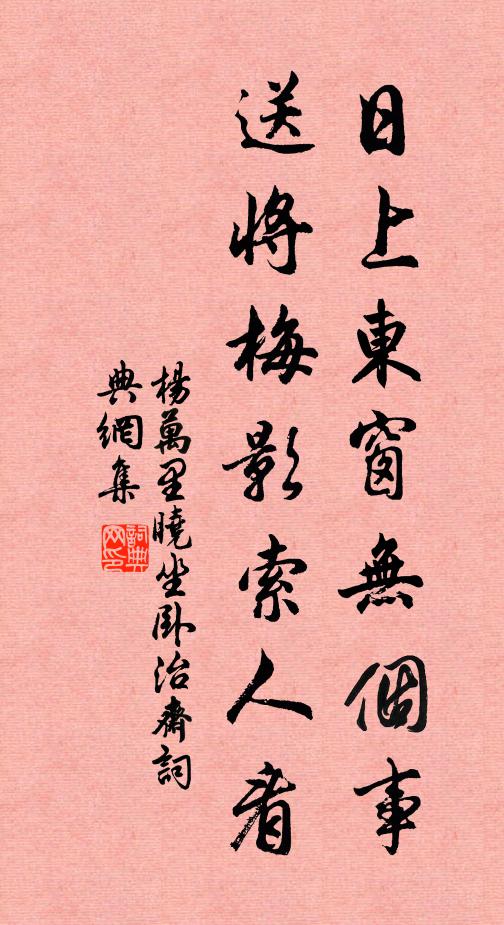 日上東窗無個事
送將梅影索人看
楊萬里曉坐卧治齋詞
典網集
詞典網印